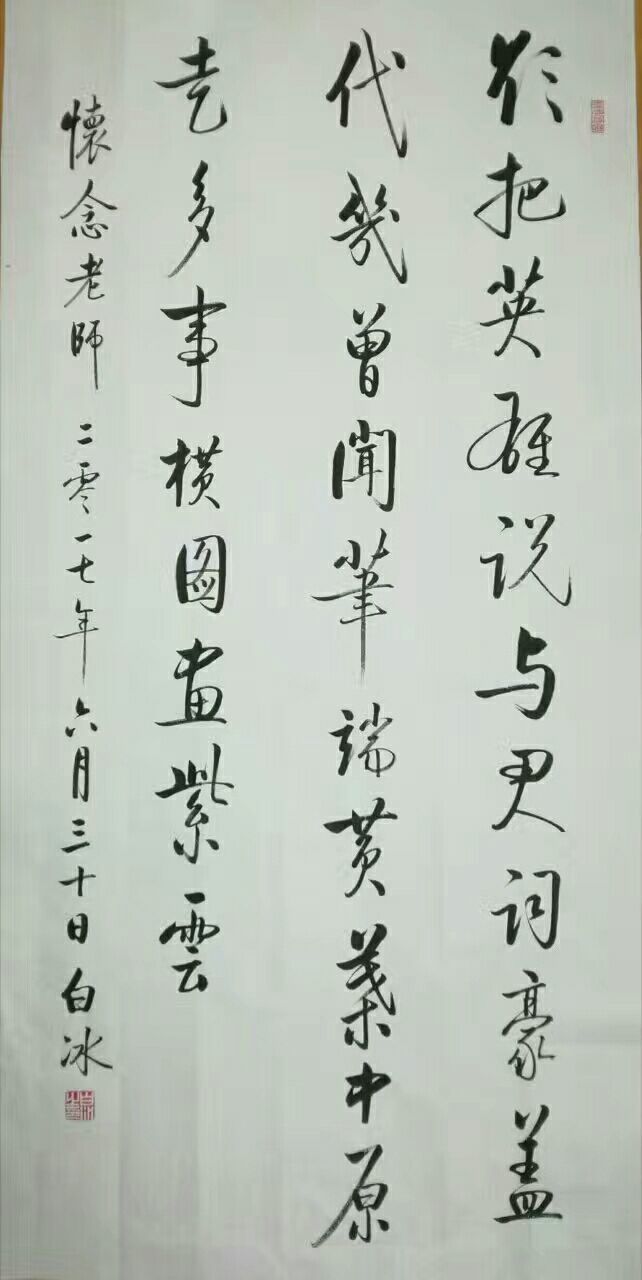 欲把英雄说与君词豪盖
代幾曾聞筆端黄葉中原
走多事横圖畫紫雲
懷念老師 二零一七年六月三十日 白冰